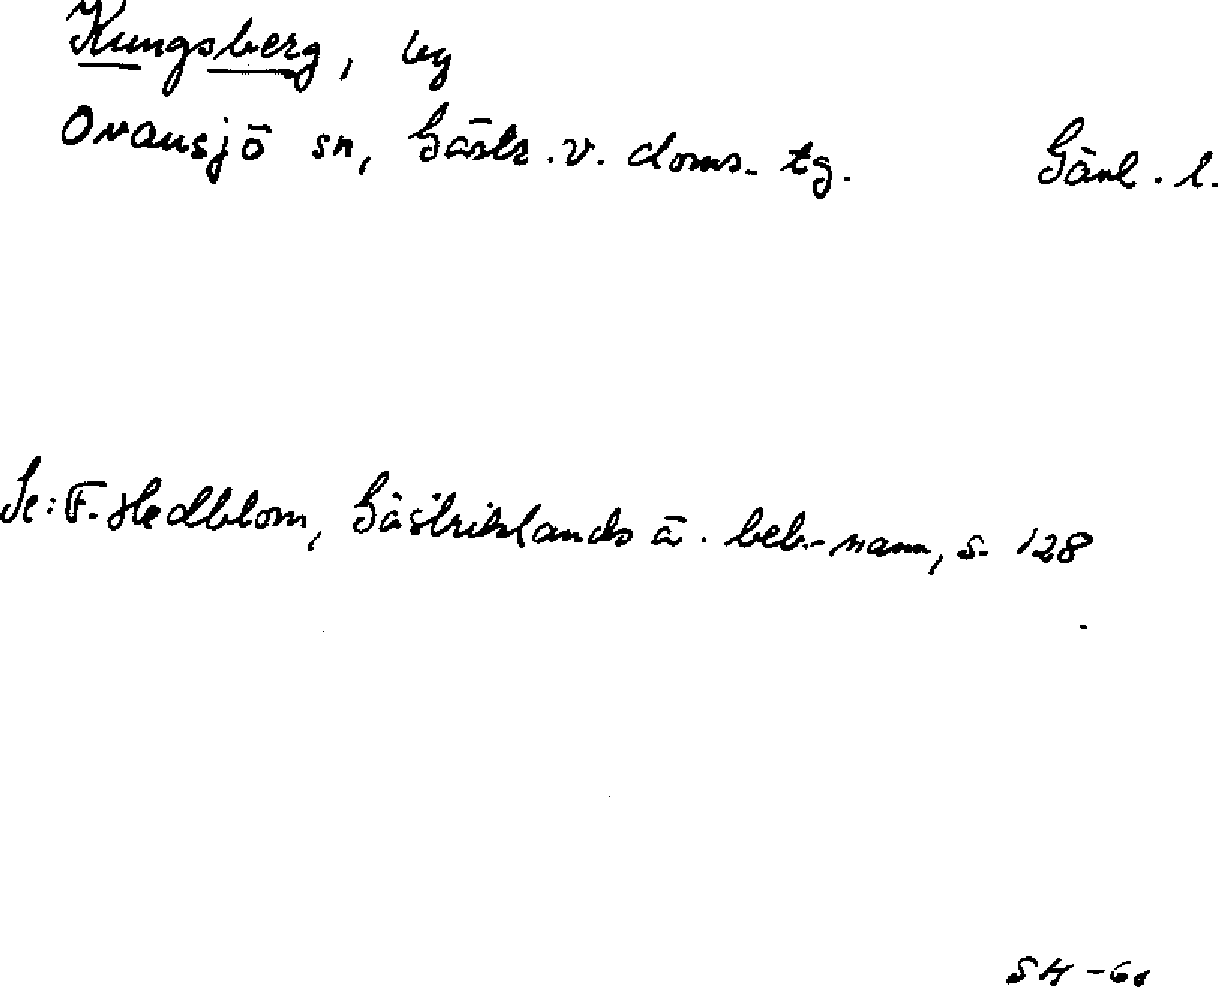 Kungsberg, by
Ovansjö sn, Gästr. v. doms. tg. Gävl. l.
Se: F. Hedblom, Gästriklands ä. beb.-namn, s. 128
SH -60